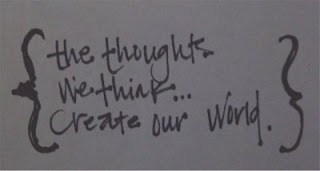 {the thoughts
we think...
Create our World.}